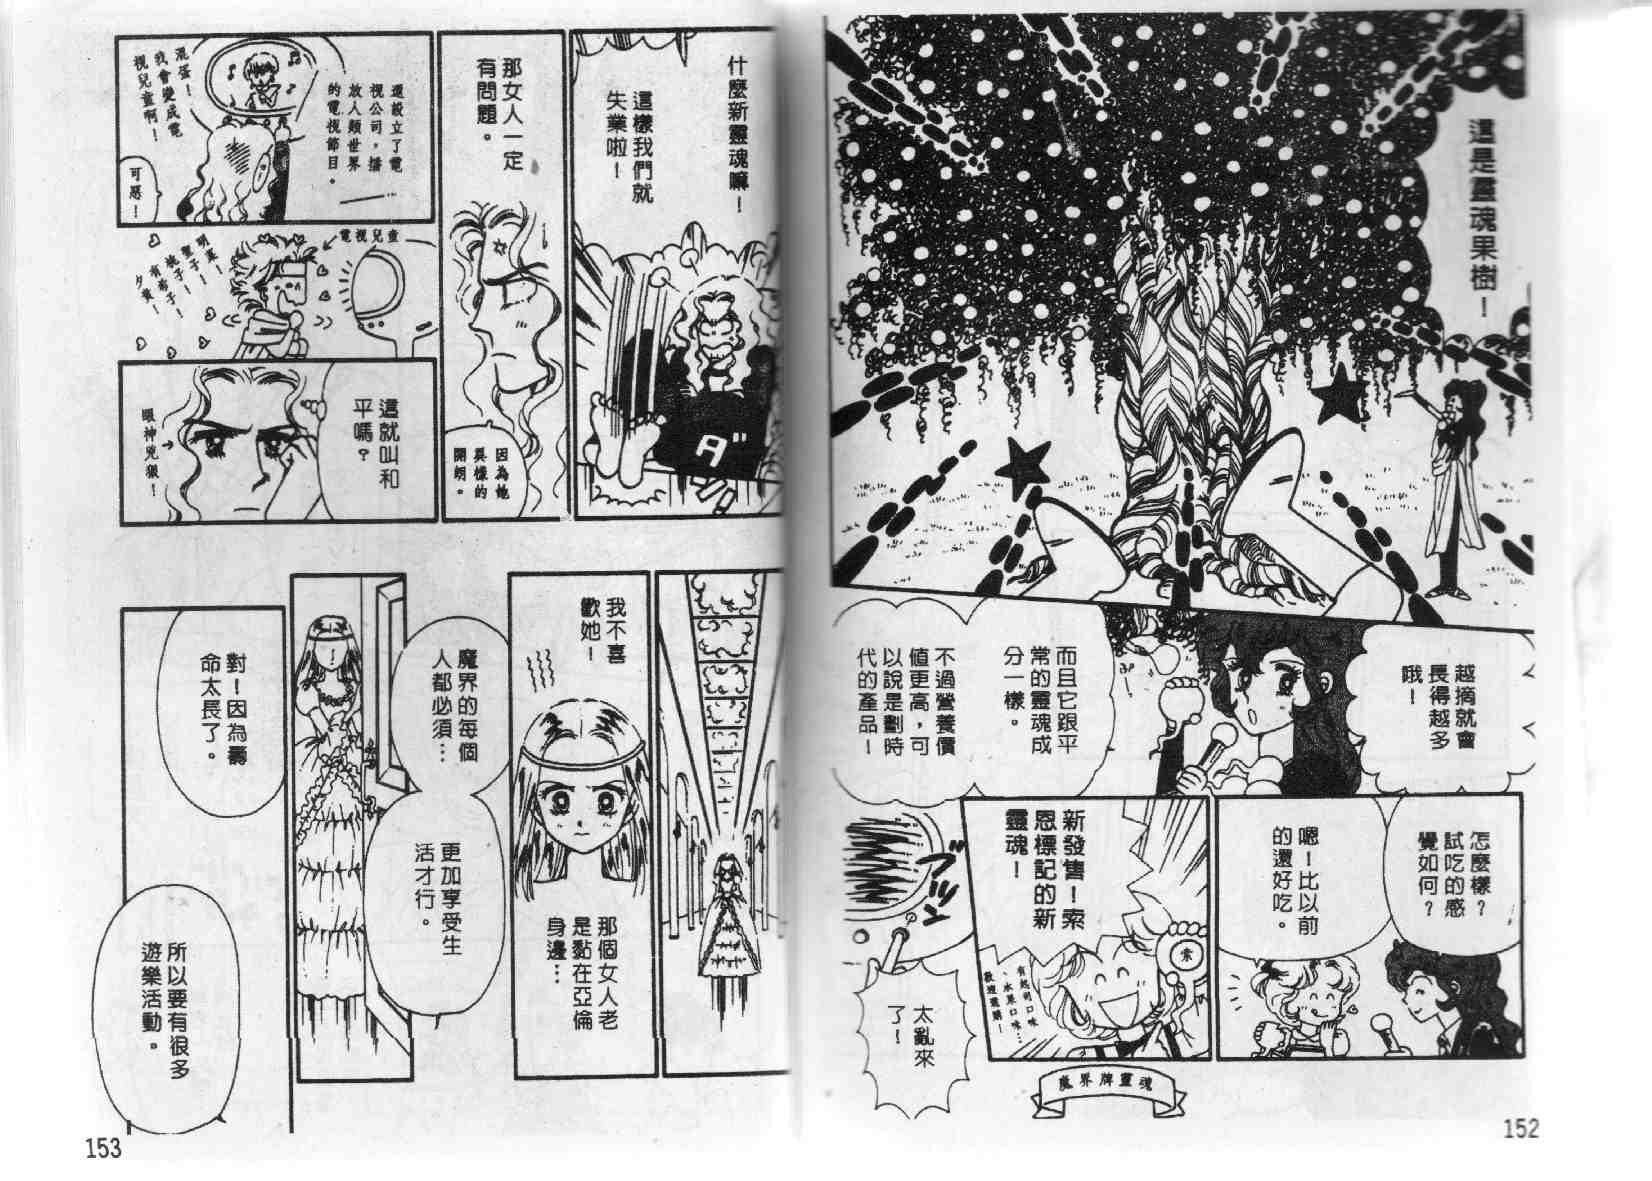 這是靈魂果樹！
越摘就會
長得越多
哦！
而且它跟平
常的靈魂成
分一樣。
不過營養價
值更高，可
以說是劃時
代的產品！
怎麼樣？
試吃的感
覺如何？
嗯！比以前
的還好吃。
新發售！索
恩標記的新
靈魂！
索
有起司口味
、水果口味…
歡迎選購！
魔界牌靈魂
ブツン
太亂來
了！
152
什麼新靈魂嘛！
這樣我們就
失業啦！
ダ
那女人一定
有問題。
因為她
異樣的
開朗。
還設立了電
視公司，播
放人類世界
的電視節目。
混蛋！
我會變成電
視兒童啊！
可惡！
電視兒童
明菜！
聖子！
桃子！
有希子！
夕貴！
這就叫和
平嗎？
眼神兇狠！
我不喜
歡她！
那個女人老
是黏在亞倫
身邊…
魔界的每個
人都必須…
更加享受生
活才行。
對！因為壽
命太長了。
所以要有很多
遊樂活動。
153